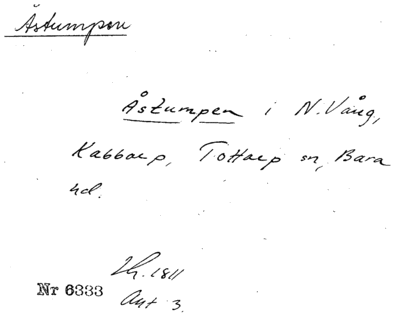 Åstumpen
Åstumpen i N. Vång,
Kabbarp, Tottarp sn, Bara
hd.
Lh. 1811
Nr 6333
Akt 3.